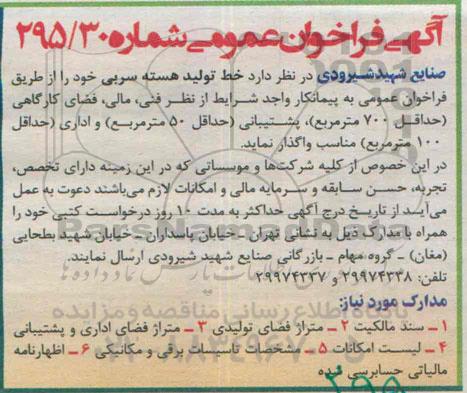 آگهی فراخوان عمومی شماره ۲۹۵/۳۰
صنایع شهید شیرودی در نظر دارد خط تولید هسته سربی خود را از طریق
فراخوان عمومی به پیمانکار واجد شرایط از نظر فنی، مالی، فضای کارگاهی
(حداقل ۷۰۰ مترمربع)، پشتیبانی (حداقل ۵۰ مترمربع) و اداری (حداقل
۱۰۰ مترمربع) مناسب واگذار نماید.
در این خصوص از کلیه شرکت‌ها و موسساتی که در این زمینه دارای تخصص،
تجربه، حسن سابقه و سرمایه مالی و امکانات لازم می‌باشند دعوت به عمل
می‌آید از تاریخ درج آگهی حداکثر به مدت ۱۰ روز درخواست کتبی خود را
همراه با مدارک ذیل به نشانی تهران - خیابان پاسداران - خیابان شهید بطحایی
(مغان) - گروه مهام - بازرگانی صنایع شهید شیرودی ارسال نمایند.
تلفن: ۲۹۹۷۴۳۳۸ و ۲۹۹۷۴۳۲۷
مدارک مورد نیاز:
۱ - سند مالکیت ۲ - متراژ فضای تولیدی ۳ - متراژ فضای اداری و پشتیبانی
۴ - لیست امکانات ۵ - مشخصات تاسیسات برقی و مکانیکی ۶ - اظهارنامه
مالیاتی حسابرسی شده